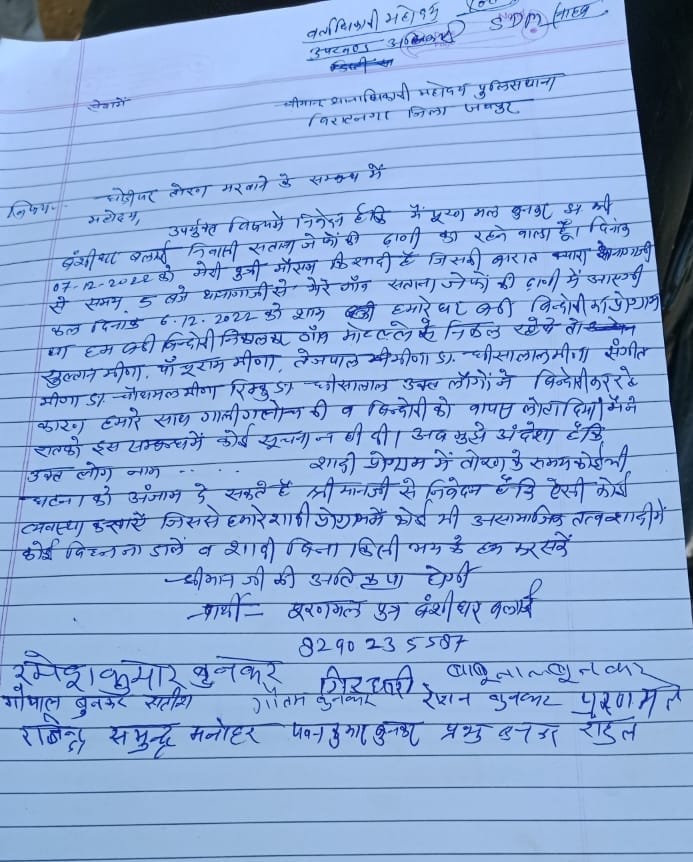 महोदय
उपखण्ड अधिकारी SDM साहब
सेवामें
श्रीमान थानाधिकारी महोदय पुलिस थाना
विराटनगर जिला जयपुर
विषय:- घोडीपर तोरण मरवाने के सम्बन्ध में
महोदय,
उपर्युक्त विषयमें निवेदन है कि में पूरण मल बुनकर S/o श्री
बंशीधर बलाई निवासी सताना जेफों की ढाणी का रहने वाला हूँ। दिनांक
07-12-2022 को मेरी पुत्री मौसम कि सादी है जिसकी बारात
से समय 5 बजे थानागाजी से मेरे गाँव सताना जेफों की ढाणी में आएगी
कल दिनांक 6.12.2022 को शाम को हमारे घर की बिन्दोरी का प्रोग्राम
था हम बिन्दोरी निकालकर गाँव मोहल्ले से निकल रहे थे तो
सुल्तान मीणा, पाँचूराम मीणा, तेजपाल मीणा S/o घीसालाल मीणा संगीत
मीणा S/o चौथमल मीणा रिन्कु S/o घीसालाल उक्त लोगों ने बिन्दोरी कर रहे
कारण हमारे साथ गाली गलोच की व बिन्दोरी को वापस लोटा दिया। मैंने
रातको इस सम्बन्धमें कोई सूचना न दी थी। अब मुझे अंदेशा है कि
उक्त लोग नाम .... शादी प्रोग्राम में तोरण के समय कोई भी
घटना को अंजाम दे सकते है श्री मानजी से निवेदन है कि ऐसी कोई
व्यवस्था करवाऐं जिससे हमारे शादी प्रोग्राममें कोई भी असामाजिक तत्व शादी में
कोई विघ्न ना डालें व शादी बिना किसी भय के हम कर सकें
श्रीमान जी की अति कृपा होगी
प्रार्थी - पूरणमल पुत्र बंशीधर बलाई
8290235587
रमेश कुमार बुनकर गिरधारी बाबूलाल बुनकर
गोपाल बुनकर सतीश गौतम बुनकर रोशन बुनकर पूरणमल
राजेन्द्र समुन्द्र मनोहर पवन कुमार बुनकर प्रभु बुनकर राहुल